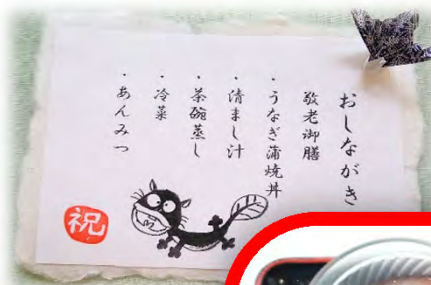 おしながき
敬老御膳
・うなぎ蒲焼丼
・清まし汁
・茶碗蒸し
・冷菜
・あんみつ
祝